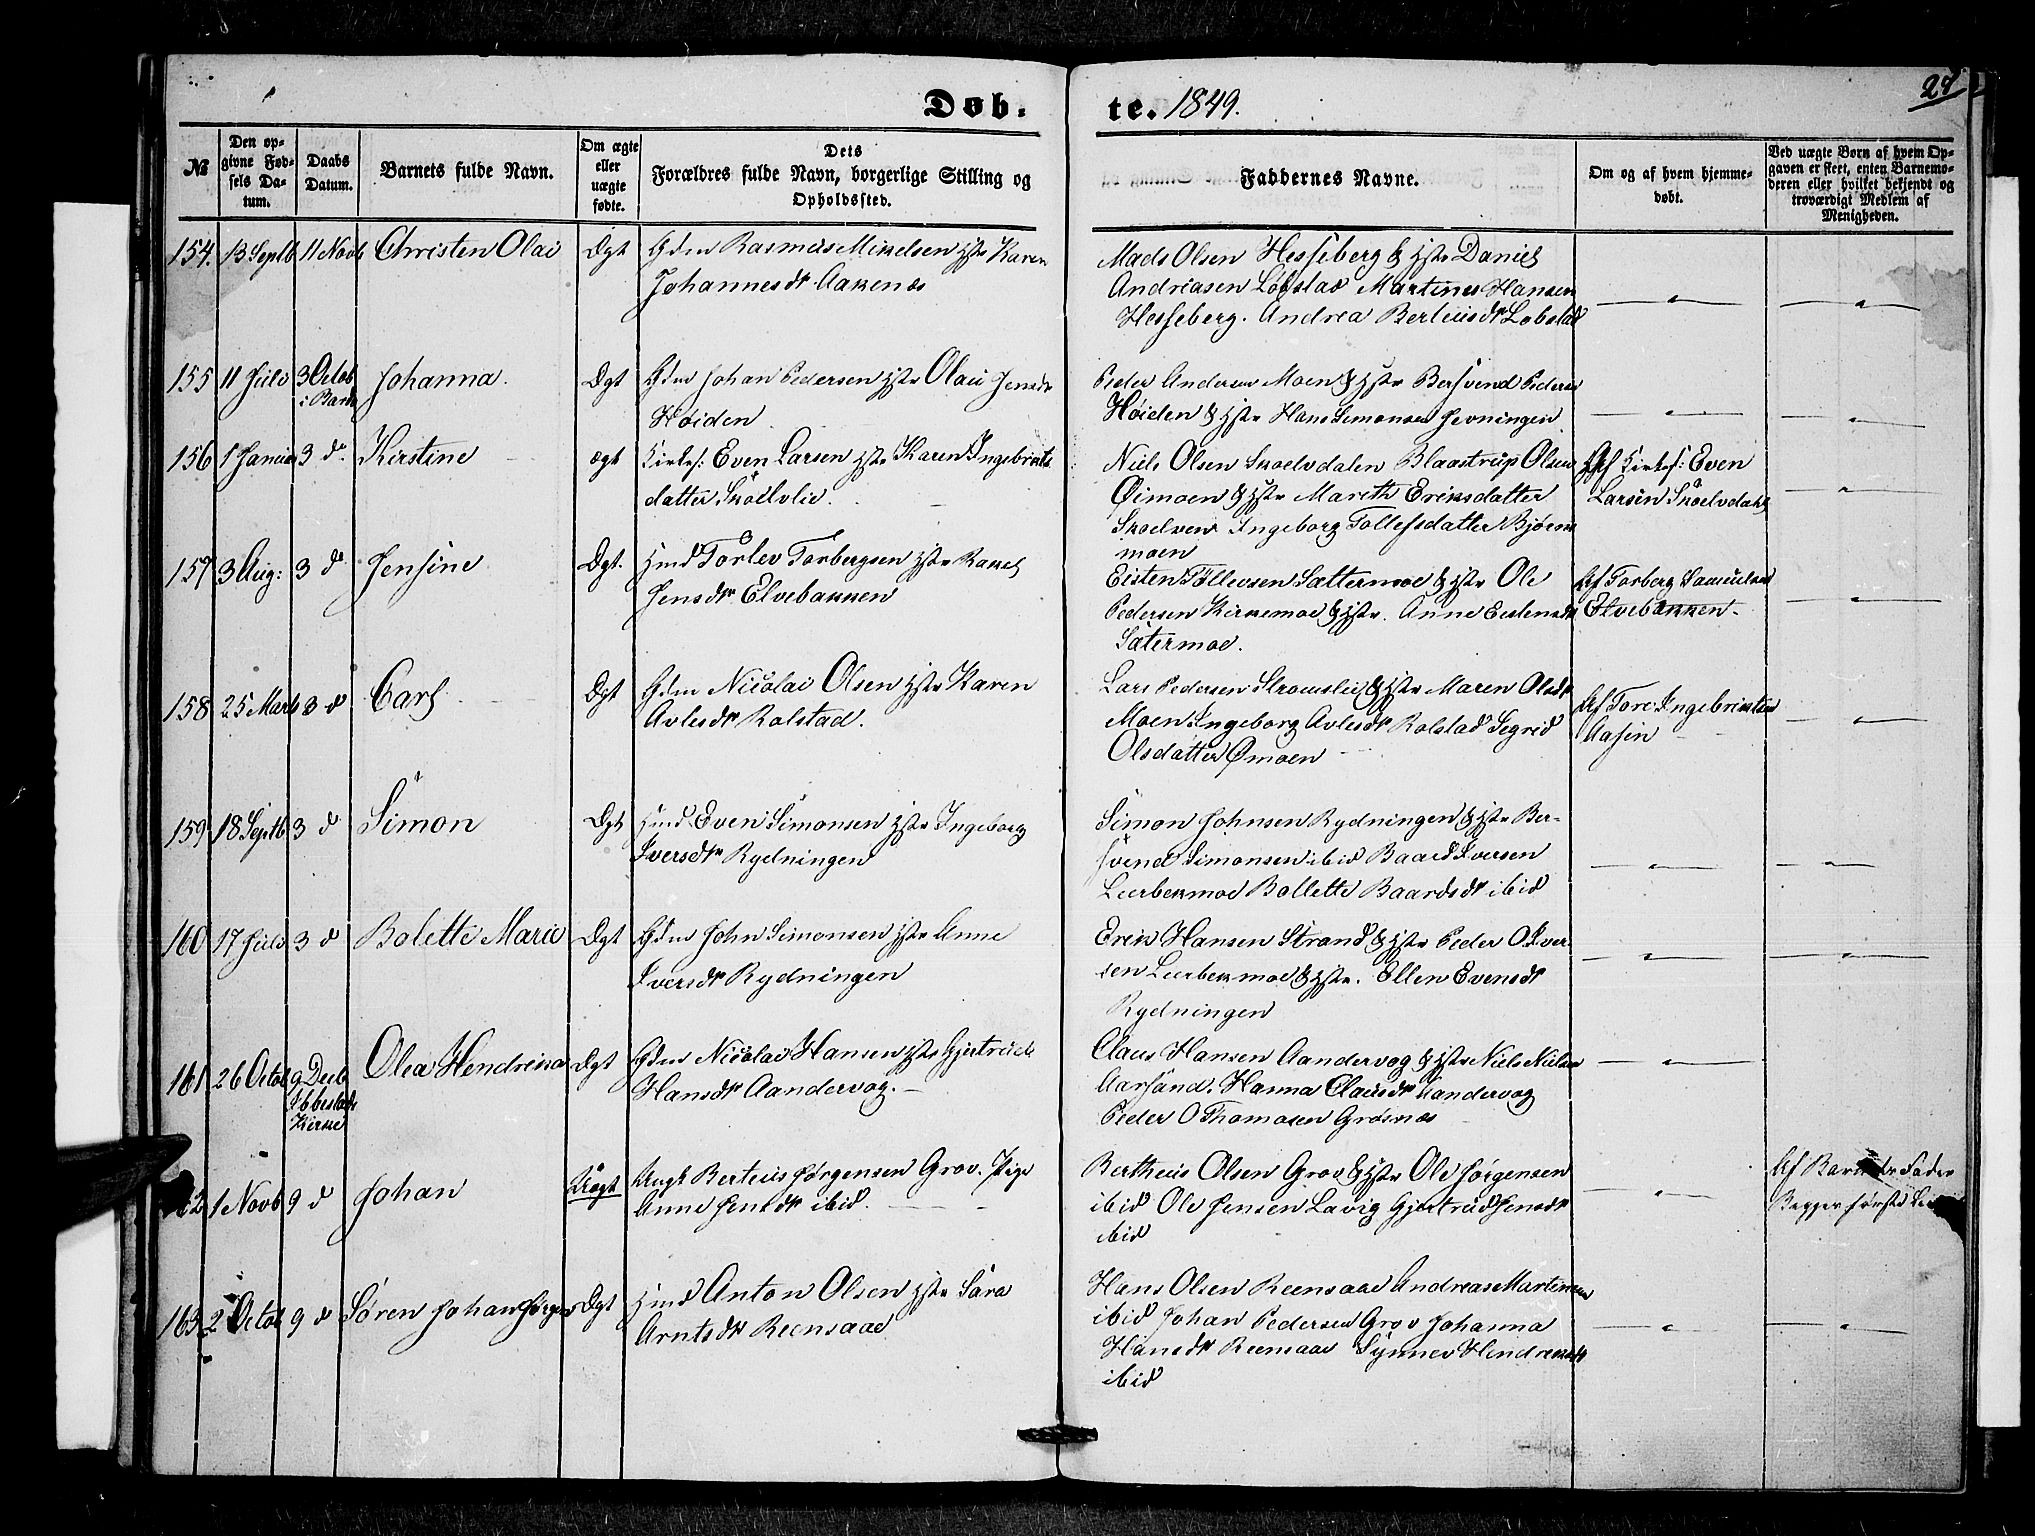 Døb-
te. 1849.
№
Den op-
givne Fød-
sels Da-
tum.
Daabs
Datum.
Barnets fulde Navn.
Om ægte
eller
uægte
fødte.
Dets
Forældres fulde Navn, borgerlige Stilling og
Opholdssted.
Faddernes Navne.
Om og af hvem hjemme-
døbt.
Ved uægte Børn af hvem Op-
gaven er skeet, enten Barnemo-
deren eller hvilket bekjendt og
troværdigt Medlem af
Menigheden.
154. 13 Septb 11 Novb Christen Olai Ægt Gdm Rasmus Mikelsen Hstr Karen
Johannesdr Aakenæs
Mads Olsen Hesseberg & Hstr Daniel
Andreasen Løbstad Martines Hansen
Hesseberg. Andrea Berteusdr Løbstad
155 11 Juli 3 Octob Johanna. Ægt Gdm Johan Pedersen Hstr Olau Jensdr
i Bards
Høiden
Peder Andersen Moen & Hstr Bersvend Peders
Høiden & Hstr Hans Simonsen Jevningen
156 1 Janua 3 d. Kirstine ægt Kirkes: Even Larsen Hstr Karen Ingebrigts
datter Skoelvlie.
Niels Olsen Skoelvdalen Blaastrup Olsen
Øimoen & Hstr Mareth Eriksdatter
Skoelven Ingeborg Tollefsdatter Bjørne
moen
Af Kirkes: Even
Larsen Skoelvdahl
157 3 Aug: 3 d Jensine Ægt. Hmd Torlev Torbergsen Hstr Rakel
Jensdr Elvebakken
Eisten Tollevsen Sættermoe & Hstr Ole
Pedersen Kirkemoe & Hstr. Anne Eistensdr
Sætermoe.
Af Torberg Samuelsen
Elvebakken
158 25 Marts 3 d Carl Ægt Gdm Nicolai Olsen Hstr Karen
Avlesdr Rolstad.
Lars Pedersen Strømslie & Hstr Maren Olsdr
Moen Ingeborg Avlesdr Rolstad Segrid
Olsdatter Ømoen
Af Tore Ingebriktsen
Aasen
159 18 Septb 3 d Simon Ægt Hmd. Even Simonsen Hstr Ingeborg
Iversdr Rydningen
Simon Johnsen Rydningen & Hstr Ber-
svend Simonsen ibid Baard Iversen
Leerbekmoe Bollette Baardsdr ibid
160 17 Juli 3 d Bolette Marie Ægt Gdm John Simonsen Hstr Anne
Iversdr Rydningen
Erik Hansen Strand & Hstr Peder O Iver-
sen Leerbekmoe & Hstr. Ellen Evensdr
Rydningen
161. 26 Octob 9 Decb Olea Hendrikka Ægt Gdm Nicolai Hansen Hstr Gjertrude
Ibbestads
Kirke
Hansdr Aandervog.
Claus Hansen Aandervog & Hstr Niels Nielsen
Aarsand. Hanna Clausdr Aandervog
Peder O Thomasen Grøsnæs
1 Novb 9 d Johan Uægt Ungk Berteus Jørgensen Grov. Pige
Anne Jensdr ibid.
Bertheus Olsen Grov & Hstr Ole Jørgensen
ibid Ole Jensen Lavig Gjertrud Jensdr
ibid
Af Barnets Fader
Begges første Lei
163 2 Octob 9 d Søren Johan Jørgen Ægt Hmd Anton Olsen Hstr Sara
Arntsdr Reensaae
Hans Olsen Reensaae Andreas Martinsen
ibid Johan Pedersen Grov Johanna
Hansdr Reensaae Synnev Hendriksdr
ibid